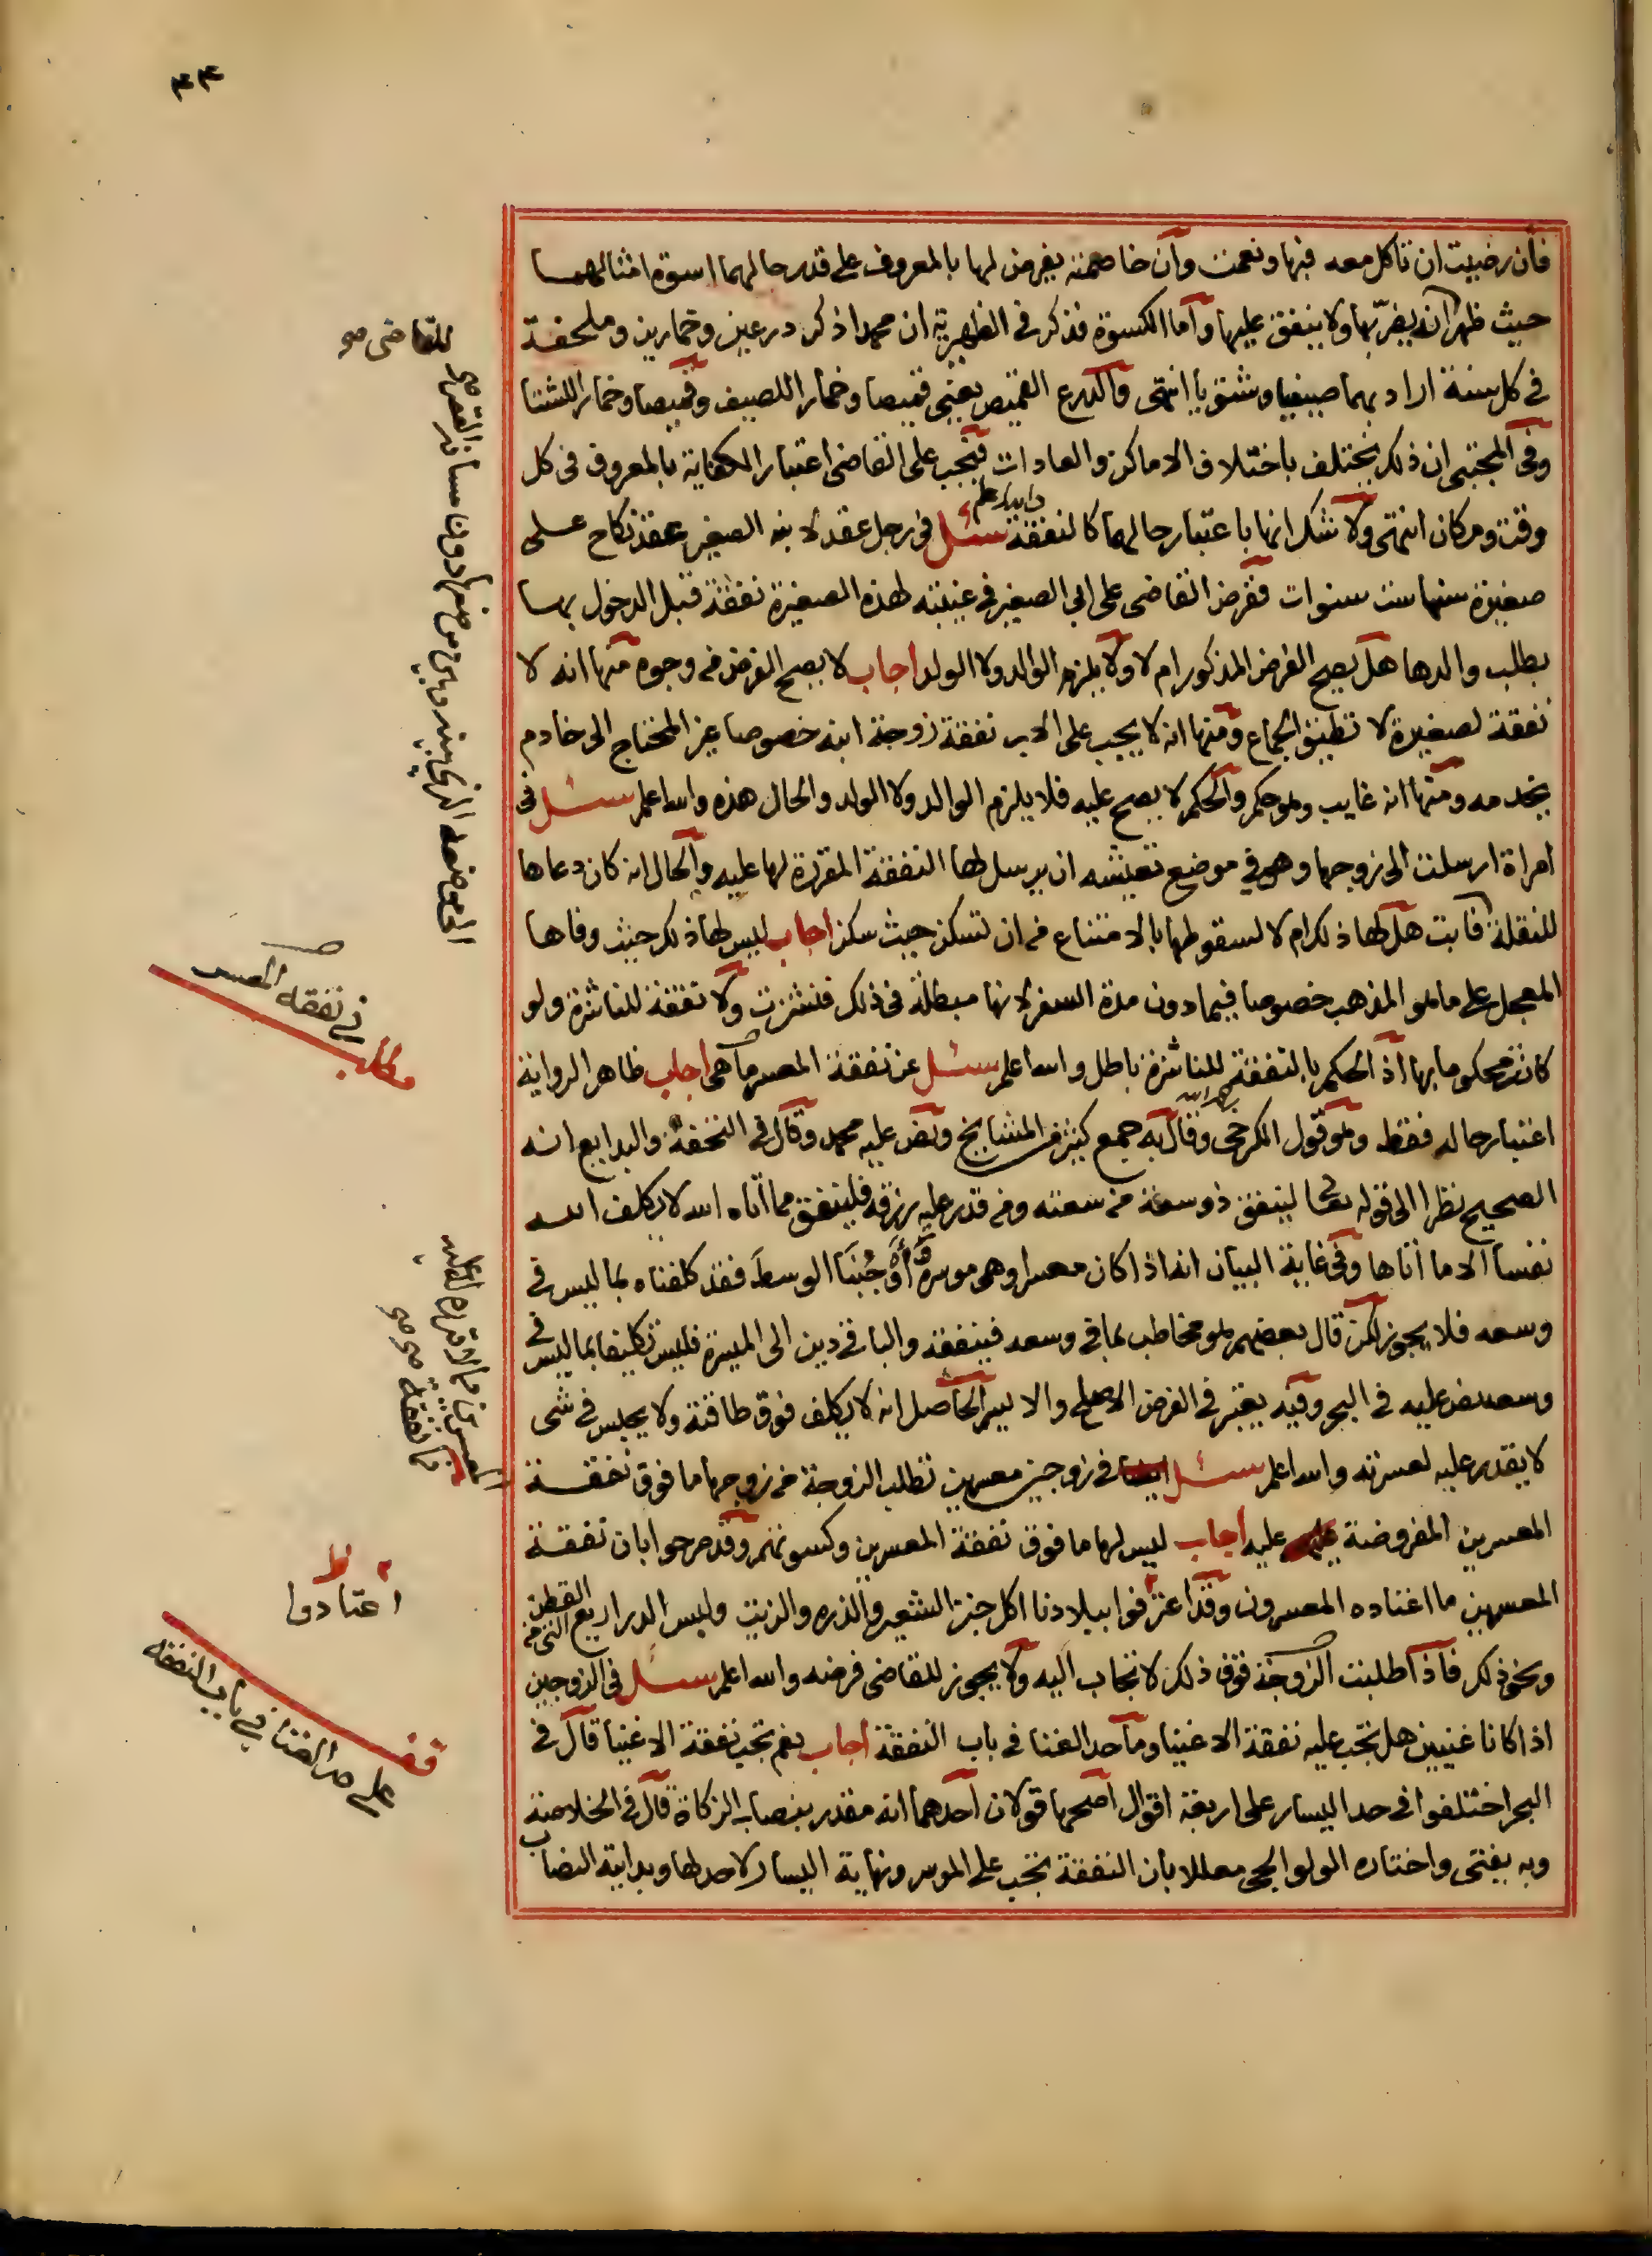 ٤٤
فان رضيت ان تاكل معه فبها ونعمت وان خاصمته يفرض لها بالمعروف على قدر حالهما اسوة امثالهما
حيث ظهر انه يضر بها ولا ينفق عليها واما الكسوة فذكر في الظهيرية ان محمدا ذكر درعين وخمارين وملحفة
في كل سنة اراد بهما صيفيا وشتويا انتهى والدرع القميص يعني قميصا وخمارا للصيف وقميصا وخمارا للشتا
وفي المجتبى ان ذلك يختلف باختلاف الاماكن والعادات فيجب على القاضي اعتبار الكفاية بالمعروف في كل
وقت ومكان انتهى ولا شك انها باعتبار حالهما كالنفقة والله اعلم سئل في رجل عقد لابنه الصغير عقد نكاح على
صغيرة سنها ست سنوات ففرض القاضي على ابي الصغير في غيبته لهذه الصغيرة نفقة قبل الدخول بها
بطلب والدها هل يصح الفرض المذكور ام لا ولا يلزم الوالد ولا الولد اجاب لا يصح الفرض من وجوه منها انه لا
نفقة لصغيرة لا تطيق الجماع ومنها انه لا يجب على الاب نفقة زوجة ابنه خصوصا غير المحتاج الى خادم
يخدمه ومنها انه غايب وهو حكم والحكم لا يصح عليه فلا يلزم الوالد ولا الولد والحال هذه والله اعلم سئل في
امراة ارسلت الى زوجها وهو في موضع تعيشه ان يرسل لها النفقة المقررة لها عليه والحال انه كان دعاها
للنقلة فابت هل لها ذلك ام لا لسقوطها بالامتناع من ان تسكن حيث سكن اجاب ليس لها ذلك حيث وفاها
المعجل على ما هو المذهب خصوصا فيما دون مدة السفر لانها مبطلة في ذلك فنشزت ولا نفقة للناشزة ولو
كانت محكوما بها اذ الحكم بالنفقة للناشزة باطل والله اعلم سئل عن نفقة المعسر ما هي اجاب ظاهر الرواية
اعتبار حاله فقط وهو قول الكرخي رحمه الله وقال به جمع كثير من المشايخ ونص عليه محمد وقال في التحفة والبدايع انه
الصحيح نظرا الى قوله تعالى لينفق ذو سعة من سعته ومن قدر عليه رزقه فلينفق مما اتاه الله لا يكلف الله
نفسا الا ما اتاها وفي غاية البيان انه اذا كان معسرا وهي موسرة واوجبنا الوسط فقد كلفناه بما ليس في
وسعه فلا يجوز لكن قال بعضهم هو مخاطب بما في وسعه فينفقه والباقي دين الى الميسرة فليس تكليفا بما ليس في
وسعه نص عليه في البحر وفيه يعتبر في الفرض الاصلح والايسر الحاصل انه لا يكلف فوق طاقته ولا يحبس في شى
لا يقدر عليه لعسرته والله اعلم سئل في زوجين معسرين تطلب الزوجة من زوجها ما فوق نفقة
المعسرين المفروضة عليه اجاب ليس لها ما فوق نفقة المعسرين وكسوتهم وقد صرحوا بان نفقة
المعسرين ما اعتاده المعسرون وقد اعترفوا ببلادنا اكل خبز الشعير والذره والزيت ولبس الدراريع القطن
ونحو ذلك فاذا طلبت الزوجة فوق ذلك لا تجاب اليه ولا يجوز للقاضي فرضه والله اعلم سئل في الزوجين
اذا كانا غنيين هل تجب عليه نفقة الاغنيا وما حد الغنا في باب النفقة اجاب نعم تجب نفقة الاغنيا قال في
البحر اختلفوا في حد اليسار على اربعة اقوال اصحها قولان احدهما انه مقدر بنصاب الزكاة قال في الخلاصة
وبه يفتى واختاره الولوالجي معللا بان النفقة تجب على الموسر ونهاية اليسار لا حد لها وبداية النصاب
للقاضي صح
مطلب
في نفقة المعسر
اعتادوا
قف
على حد الغنا في باب النفقه